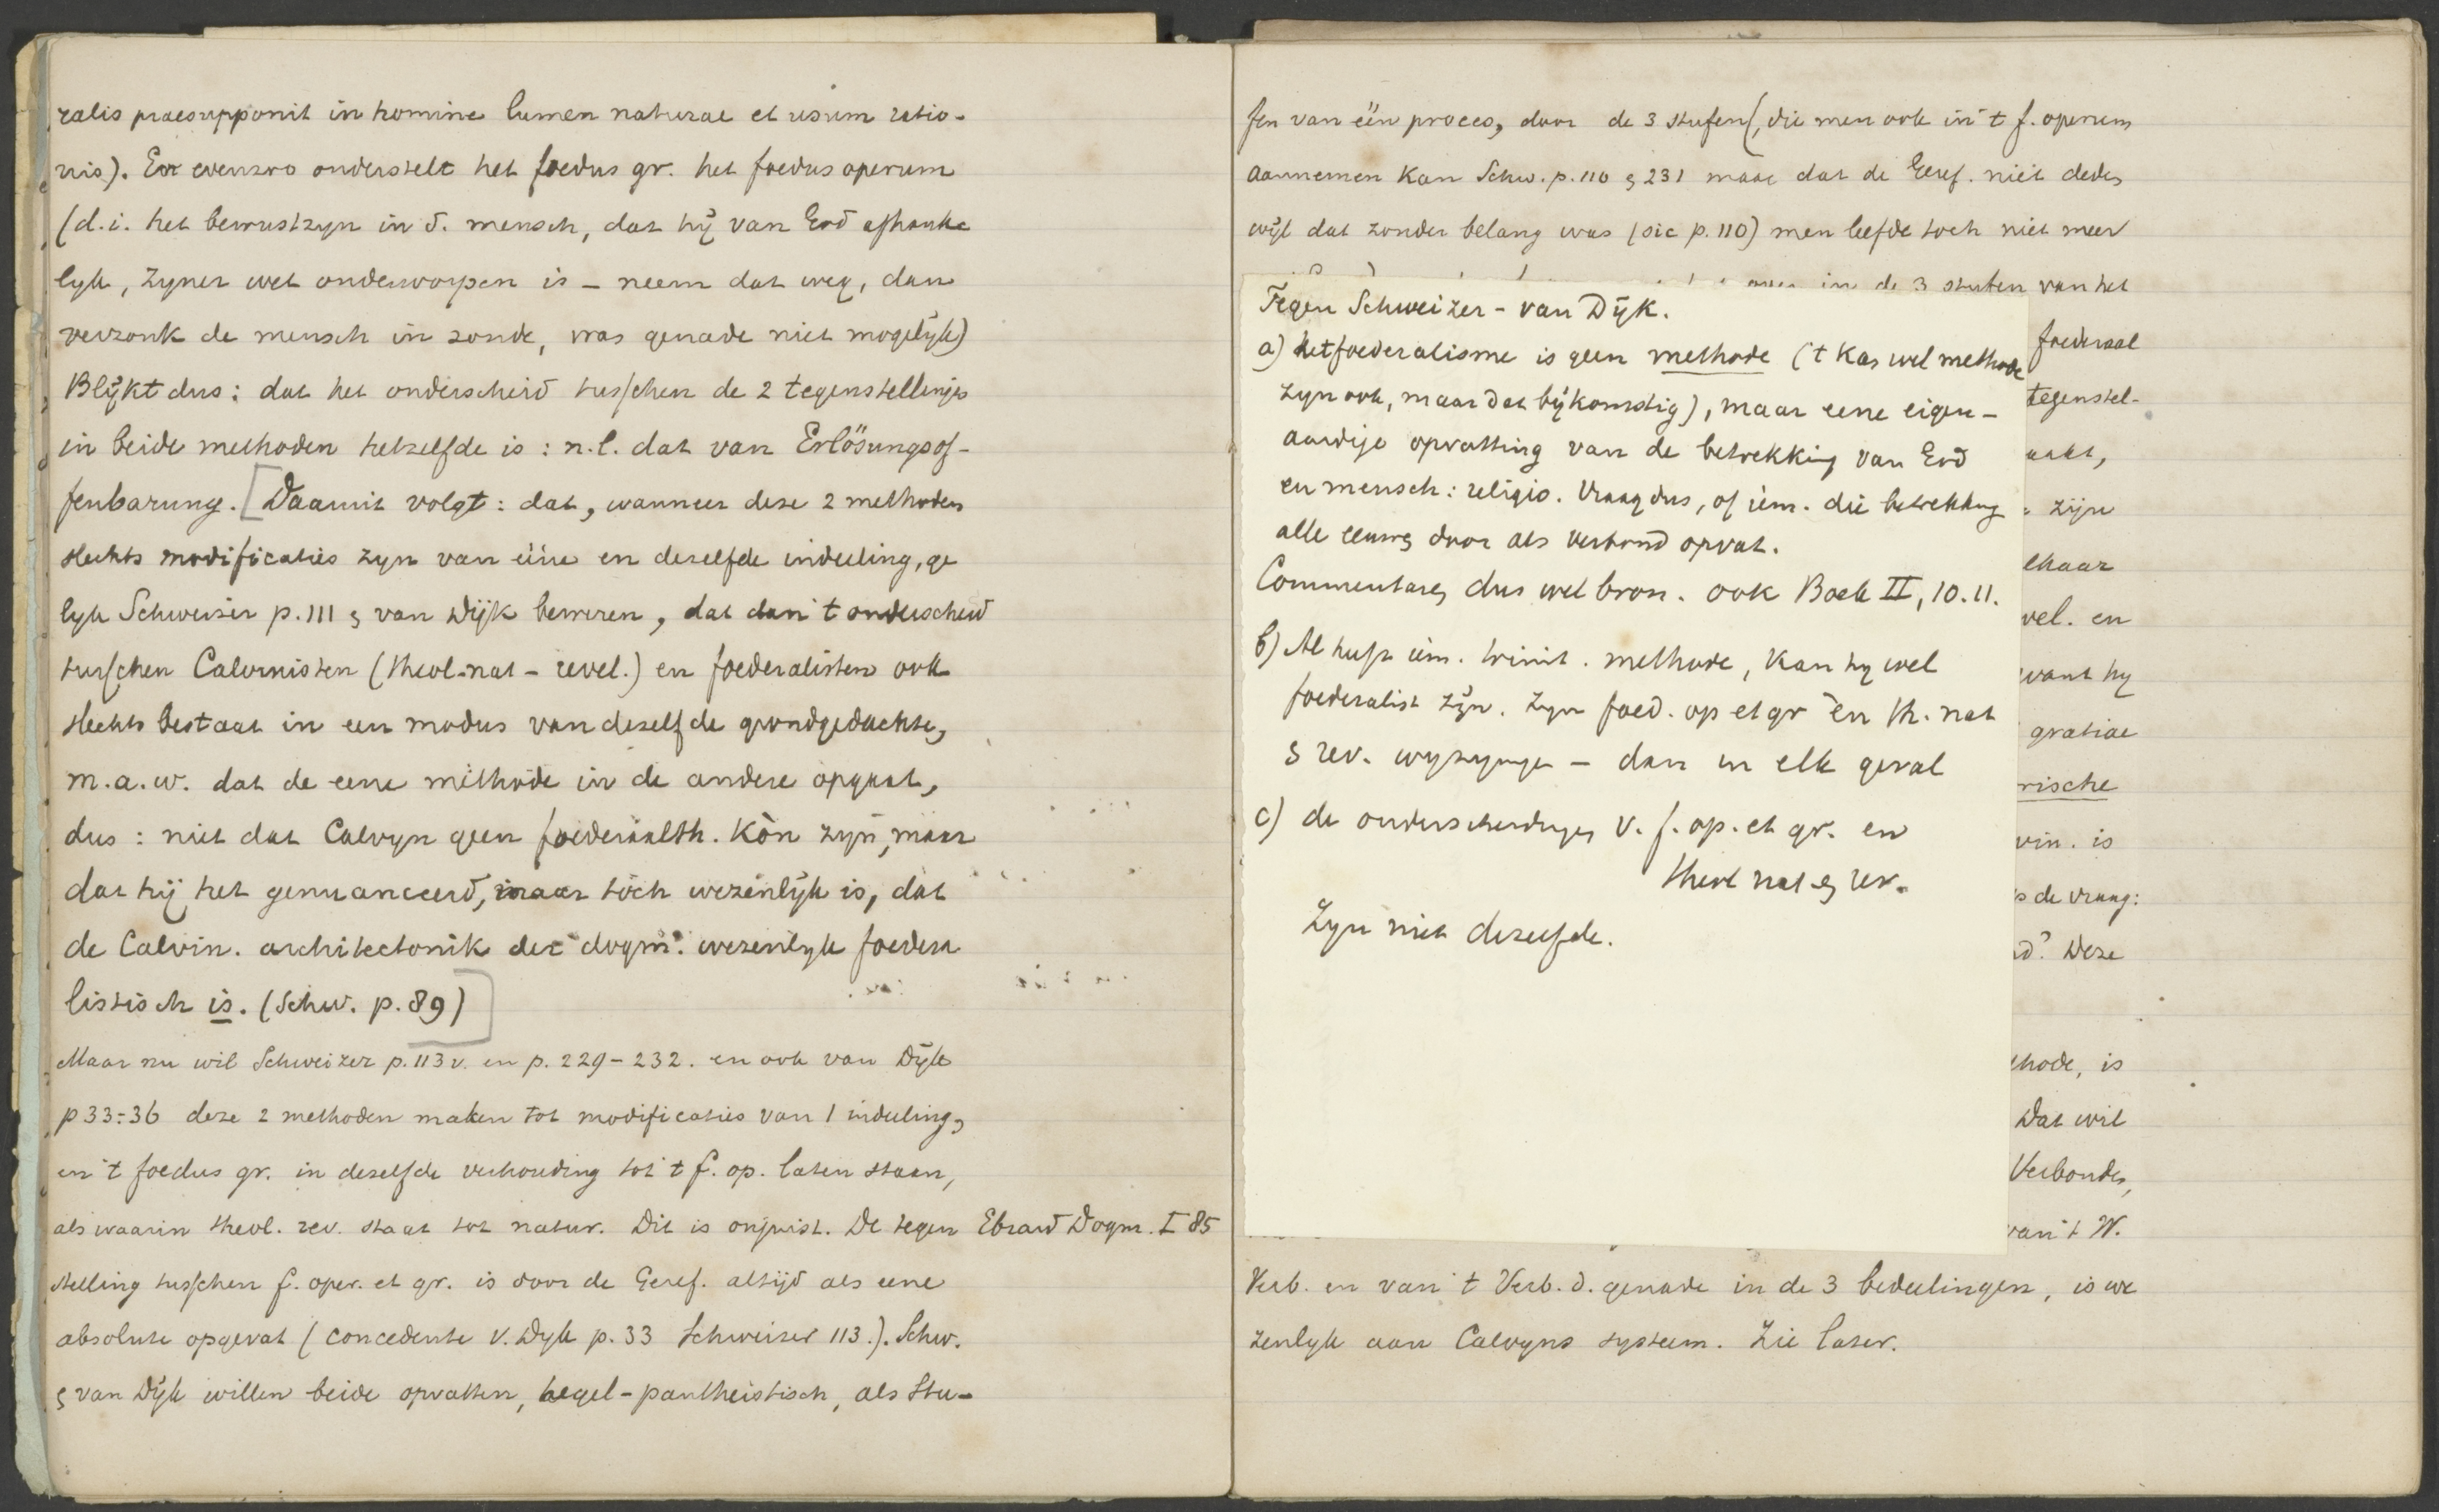 ralis praesupponit in homine lumen naturae et usum ratio-
nis). En evenzoo onderstelt het foedus gr. het foedus operum
(d.i. het bewustzyn in d. mensch, dat hij van God afhanke
lyk, zyner wet onderworpen is - neem dat weg, dan
verzonk de mensch in zonde, was genade niet mogelijk)
Blijkt dus: dat het onderscheid tusschen de 2 tegenstellinge
in beide methoden hetzelfde is: n.l. dat van Erlösungsof-
fenbarung. [Daarmit volgt: dat, wanneer deze 2 methoden
slechts modificaties zyn van eéne en dezelfde indeeling, ge
lyk Schweizer p. 111 & van Dijk beweren, dat dan 't onderscheid
tusschen Calvinisten (theol. nat - revel.) en foederalisten ook
slechts bestaat in een modus van dezelfde grondgedachte,
m.a.w. dat de eene methode in de andere opgaat,
dus: niet dat Calvyn geen foederaalth. kòn zyn, maar
dat hij het genuanceerd, maar tóch wezenlijk is, dat
de Calvin. architectonik der dogm. wezenlyk foedera
listisch is. (Schw. p. 89)]
Maar nu wil Schweizer p. 113 v. en p. 229-232. en ook van Dijk
p 33-36 deze 2 methoden maken tot modificaties van 1 indeeling,
en 't foedus gr. in dezelfde verhouding tot 't f. op. laten staan,
als waarin theol. rev. staat tot natur. Dit is onjuist. De tegen Ebrard Dogm. I 85
stelling tusschen f. oper. et gr. is door de Geref. altijd als eene
absolute opgevat (concedente v. Dyk p. 33 Schweizer 113.). Schw.
& van Dijk willen beide opvatten, hegel-pantheistisch, als Stu-
fen van één proces, door de 3 stufen (, die men ook in 't f. operum
aannemen kan Schw. p. 110 & 231 maar dat de Geref. niet dedes
wijl dat zonder belang was (sic p. 110) men leefde toch niet meer
in de 3 stufen van het
Tegen Schweizer - van Dijk.
a) het foederalisme is geen methode ('t kan wel methode
zyn ook, maar dat bijkomstig), maar eene eigen-
aardige opvatting van de betrekking van God
en mensch: religio. Vraag dus, of iem. die betrekking
alle eeuwen door als verbond opvat.
Commentares dus wel bron. ook Boek II, 10. 11.
b) Al heeft iem. trinit. methode, kan hy wel
foederalist zijn. Zyn foed. op et gr en th. nat
& rev. wyzigingen - dan in elk geval
c) de onderscheidingen v. f. op. et gr. en
theol nat & rev.
Zyn niet dezelfde.
foederaal
tegenstel-
zijn
lkaar
vel. en
want hy
gratiae
rische
vin. is
de vraag:
Deze
thode, is
Dat wil
Verbondes,
van 't W.
Verb. en van 't Verb. d. genade in de 3 bedeelingen, is we
zenlyk aan Calvyns systeem. Zie later.